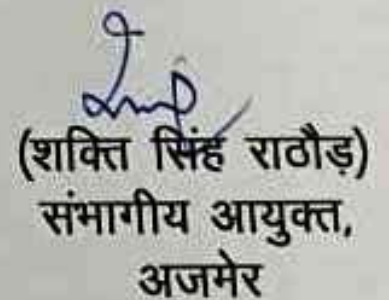 (शक्ति सिंह राठौड़)
संभागीय आयुक्त,
अजमेर